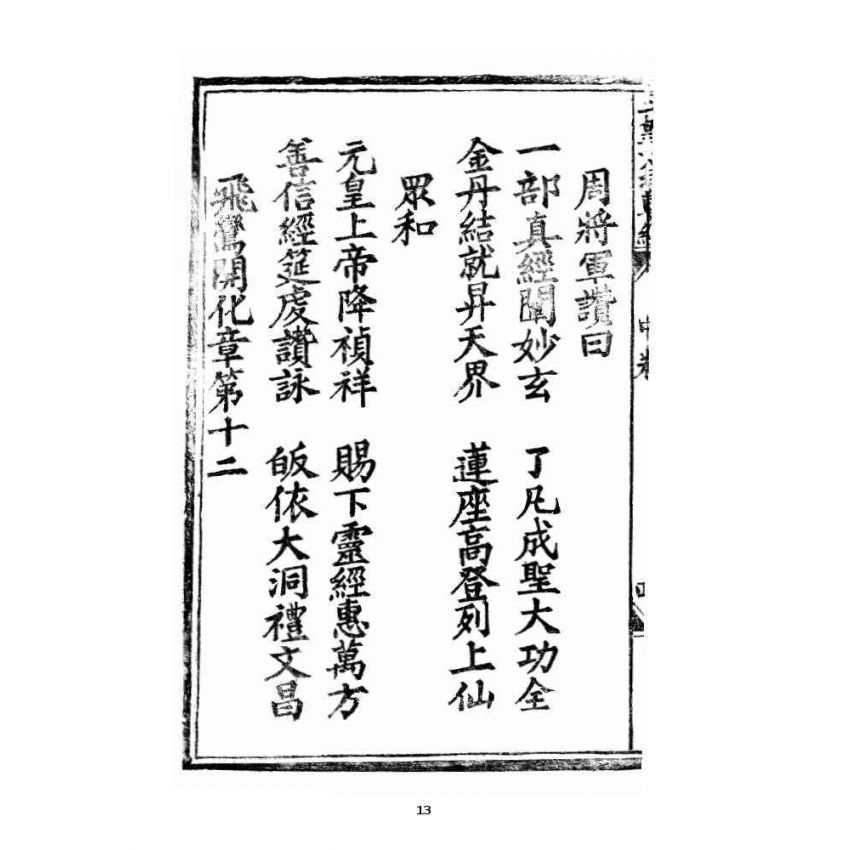 周將軍讚曰
一部真經闡妙玄　了凡成聖大功全
金丹結就昇天界　蓮座高登列上仙
眾和
元皇上帝降禎祥　賜下靈經惠萬方
善信經筵虔讚詠　皈依大洞禮文昌
飛鸞開化章第十二
中卷
13